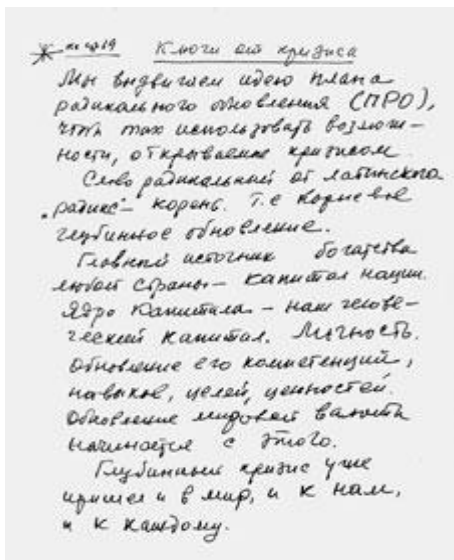 Ключи от кризиса
Мы выдвигаем идею плана
радикального обновления (ПРО),
чтоб использовать возмож-
ности, открываемые кризисом
Слово радикальный от латинского
"радикс" - корень. Т.е корневое
глубинное обновление.
Главный источник богатства
любой страны - капитал нации.
Ядро капитала - наш челове-
ческий капитал. Личность.
Обновление его компетенций,
навыков, целей, ценностей.
Обновление мировой валюты
начинается с этого.
Глубинный кризис уже
пришел и в мир, и к нам,
и к каждому.